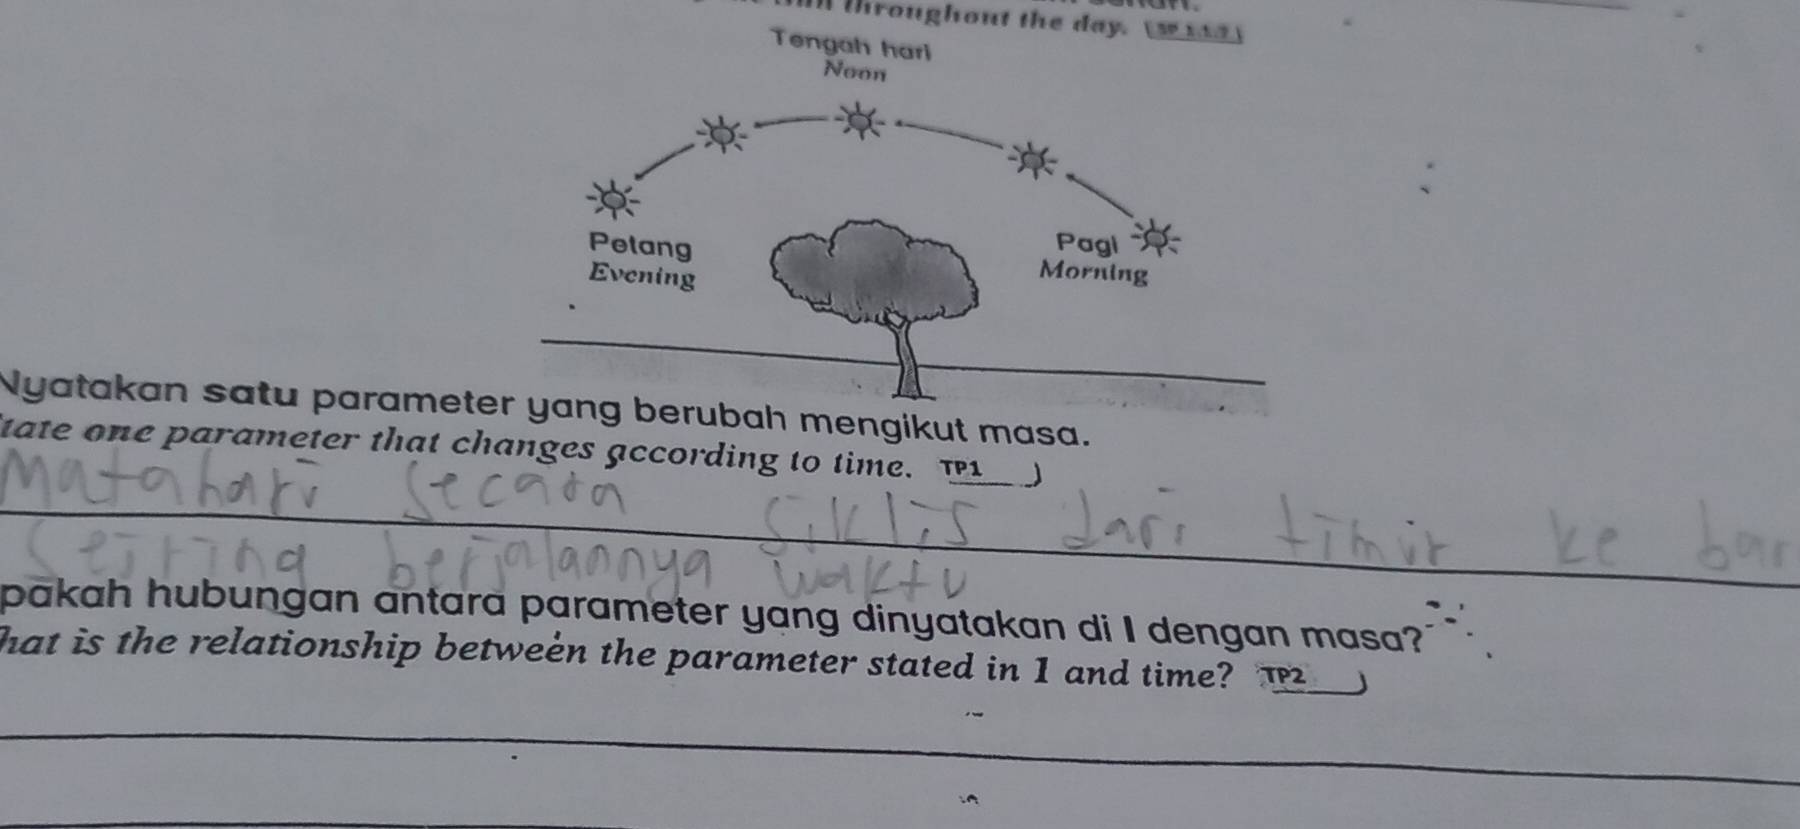 throughout the day. SP 1.1.2
Tengah hari
Noon
Petang
Evening
Pagi
Morning
Nyatakan satu parameter yang berubah mengikut masa.
tate one parameter that changes according to time. TP1
Matahari secara siklis dari timur ke bar
Seiring berjalannya waktu
pakah hubungan antara parameter yang dinyatakan di I dengan masa?
hat is the relationship between the parameter stated in 1 and time? TP2